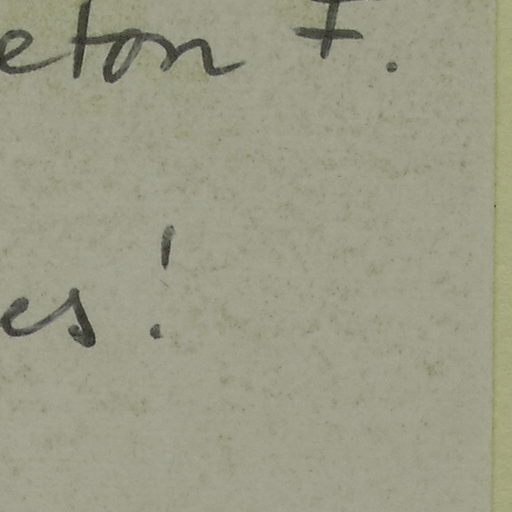 eton F.
es!